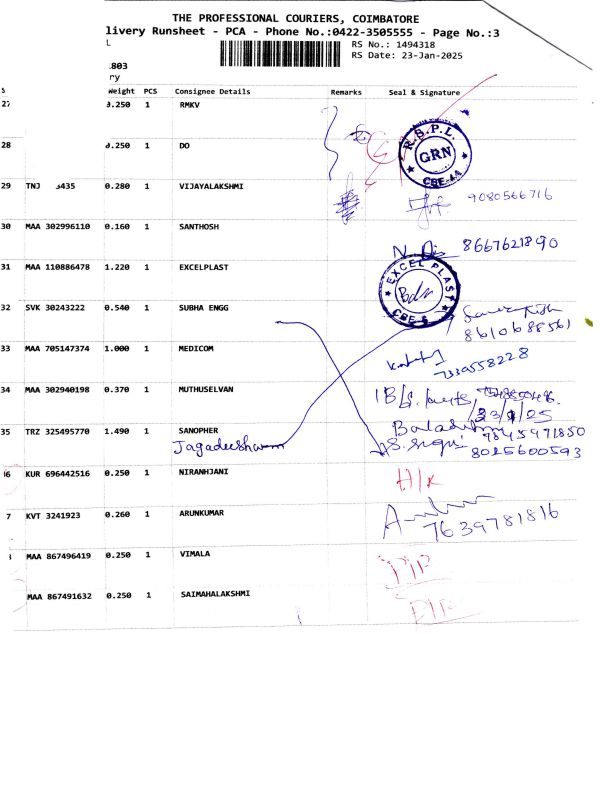 THE PROFESSIONAL COURIERS, COIMBATORE
livery Runsheet - PCA - Phone No.:0422-3505555 - Page No.:3
RS No.: 1494318
RS Date: 23-Jan-2025
.803
ry
Weight PCS Consignee Details Remarks Seal & Signature
27 0.250 1 RMKV
28 0.250 1 DO
R.B.P.L. GRN CBE-44
29 TNJ 435 0.280 1 VIJAYALAKSHMI 9080566716
30 MAA 302996110 0.160 1 SANTHOSH 8667621890
31 MAA 110886478 1.220 1 EXCELPLAST EXCEL PLAST CBE-6
32 SVK 30243222 0.540 1 SUBHA ENGG 8610688561
33 MAA 705147374 1.000 1 MEDICOM 7339558228
34 MAA 302940198 0.370 1 MUTHUSELVAN
35 TRZ 325495770 1.490 1 SANOPHER 9845971850
Jagadeeshwaran 8025600593
36 KUR 696442516 0.250 1 NIRANHJANI H/K
7 KVT 3241923 0.260 1 ARUNKUMAR 7639781816
MAA 867496419 0.250 1 VIMALA
MAA 867491632 0.250 1 SAIMAHALAKSHMI